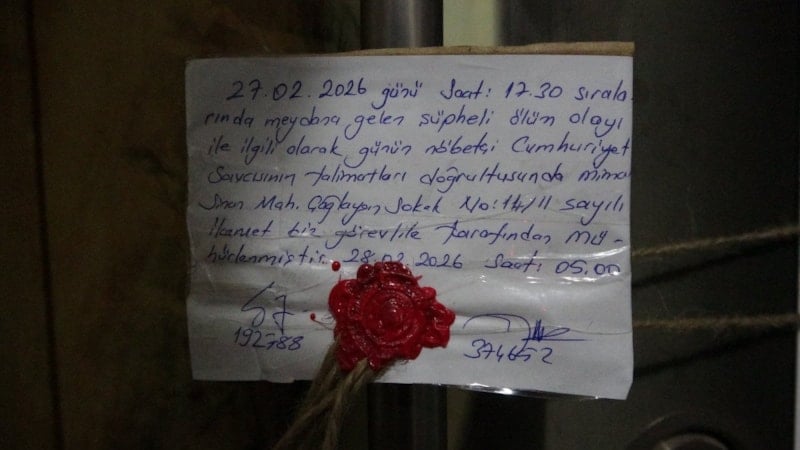 27.02.2026 günü Saat: 17.30 sırala
rında meydana gelen şüpheli ölün olayı
ile ilgili olarak günün nöbetçi Cumhuriyet
Savcısının talimatları doğrultusunda mima
Sinan Mah. Çağlayan Sokak No: 14/11 sayılı
ikamet biz görevlile tarafından mü-
hürlenmiştir. 28.02.2026 Saat: 05.00
192788
374652